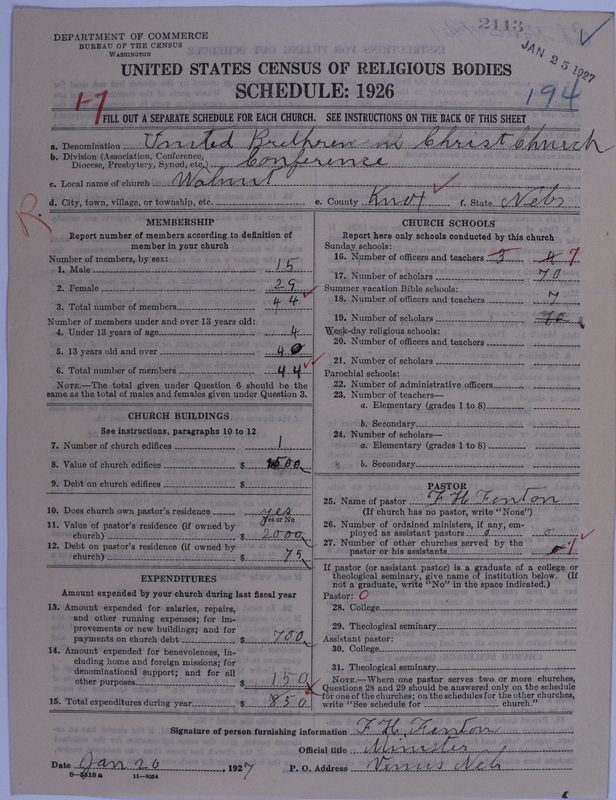 2113
JAN 25 1927
DEPARTMENT OF COMMERCE
BUREAU OF THE CENSUS
WASHINGTON
UNITED STATES CENSUS OF RELIGIOUS BODIES
SCHEDULE: 1926
17
194
FILL OUT A SEPARATE SCHEDULE FOR EACH CHURCH. SEE INSTRUCTIONS ON THE BACK OF THIS SHEET
a. Denomination United Brethren in Christ Church
b. Division (Association, Conference, Diocese, Presbytery, Synod, etc.) Conference
c. Local name of church Walnut
d. City, town, village, or township, etc. e. County Knox f. State Nebr
R.
MEMBERSHIP
Report number of members according to definition of
member in your church
Number of members, by sex:
1. Male 15
2. Female 29
3. Total number of members 44
Number of members under and over 13 years old:
4. Under 13 years of age 4
5. 13 years old and over 40
6. Total number of members 44
NOTE.—The total given under Question 6 should be the
same as the total of males and females given under Question 3.
CHURCH BUILDINGS
See instructions, paragraphs 10 to 12
7. Number of church edifices 1
8. Value of church edifices $ 1500
9. Debt on church edifices $
10. Does church own pastor's residence yes
Yes or No
11. Value of pastor's residence (if owned by
church) $ 2000
12. Debt on pastor's residence (if owned by
church) $ 75
EXPENDITURES
Amount expended by your church during last fiscal year
13. Amount expended for salaries, repairs,
and other running expenses; for im-
provements or new buildings; and for
payments on church debt $ 700
14. Amount expended for benevolences, in-
cluding home and foreign missions; for
denominational support; and for all
other purposes $ 150
15. Total expenditures during year $ 850
CHURCH SCHOOLS
Report here only schools conducted by this church
Sunday schools:
16. Number of officers and teachers 7
17. Number of scholars 70
Summer vacation Bible schools:
18. Number of officers and teachers 7
19. Number of scholars 70
Week-day religious schools:
20. Number of officers and teachers
21. Number of scholars
Parochial schools:
22. Number of administrative officers
23. Number of teachers—
a. Elementary (grades 1 to 8)
b. Secondary
24. Number of scholars—
a. Elementary (grades 1 to 8)
b. Secondary
PASTOR
25. Name of pastor F H Fenton
(If church has no pastor, write "None")
26. Number of ordained ministers, if any, em-
ployed as assistant pastors 0 0
27. Number of other churches served by the
pastor or his assistants 1
If pastor (or assistant pastor) is a graduate of a college or
theological seminary, give name of institution below. (If
not a graduate, write "No" in the space indicated.)
Pastor: 0
28. College
29. Theological seminary
Assistant pastor:
30. College
31. Theological seminary
NOTE.—Where one pastor serves two or more churches,
Questions 28 and 29 should be answered only on the schedule
for one of the churches; on the schedules for the other churches,
write "See schedule for church."
Signature of person furnishing information F. H. Fenton
Official title Minister
Date Jan 20, 1927 P. O. Address Venus Neb
8-5318 a 11-9034